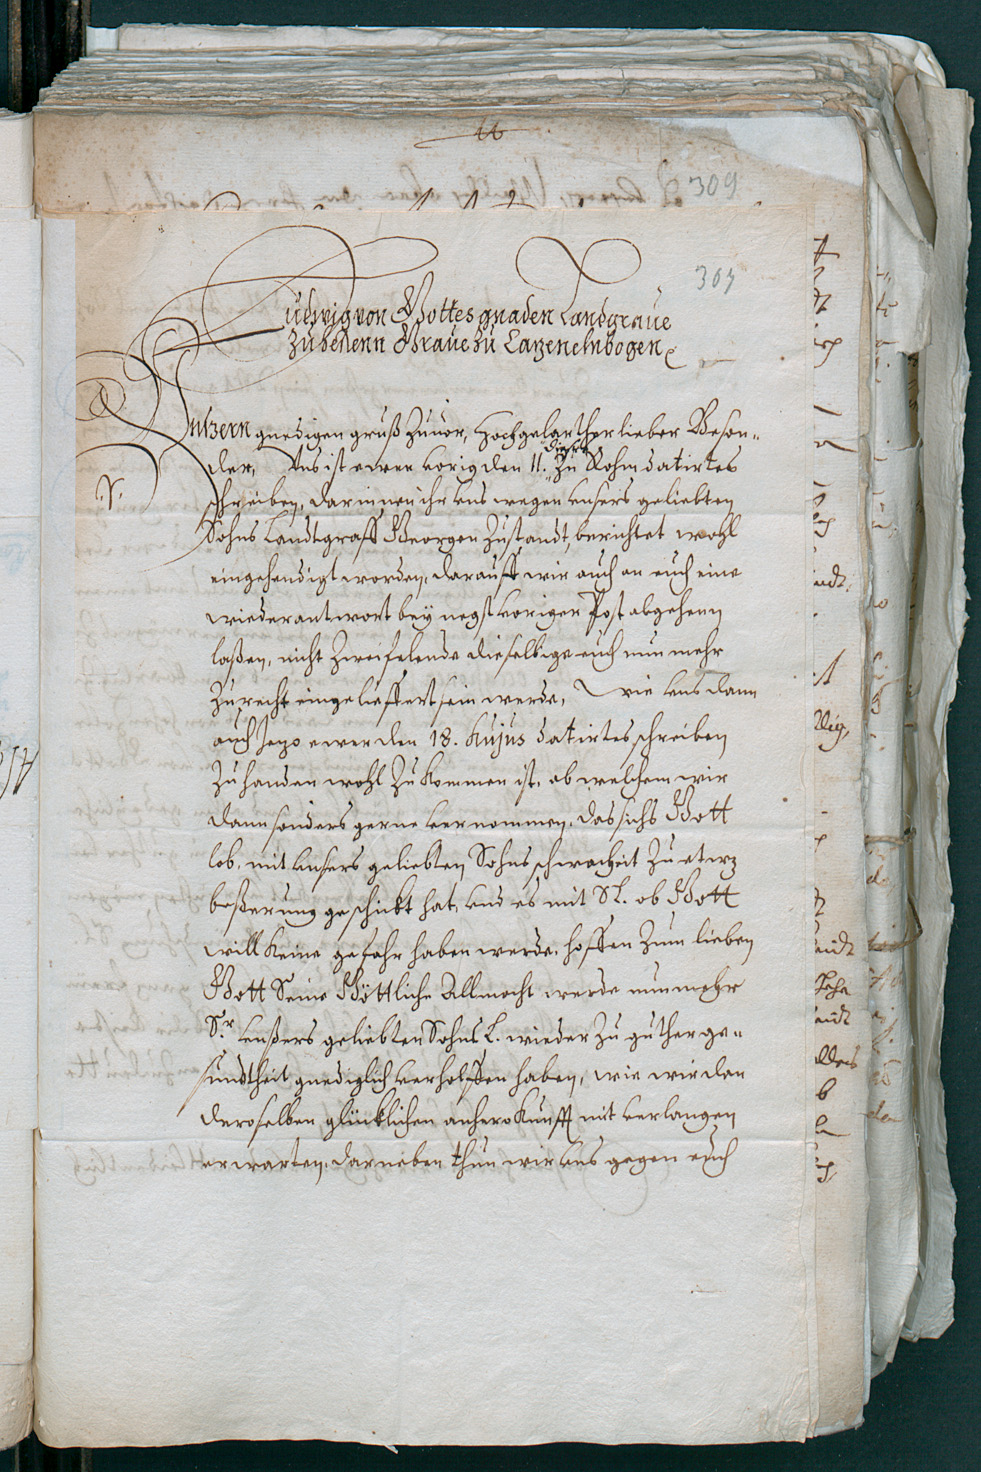 309
307
Ludwig von Gottes gnaden Landgraue
zu heßenn Graue zu Catzenelnbogen
Vnsern gnedigen gruß zuuor, Hochgelarther lieber Beson-
der, Vns ist ewer vorig den 11. dieses zu Rohm datirtes
schreiben, darinnen ihr vns wegen vnsers geliebten
Sohns Landtgraff Georgen zustandt, berichtet wohl
eingehendigt worden, darauff wir auch an euch eine
wiederantwort bey negst voriger Post abgehenn
laßen, nicht zweifelende dieselbige euch nun mehr
zurecht eingelieffert sein werde, Wie vns dann
auch jezo ewer den 18. hujus datirtes schreiben
zuhanden wohl zukommen ist, ab welchem wir
dann sonders gerne vernommen, das sichs Gott
lob, mit vnsers geliebten Sohns schwacheit zu etwz
beßerung geschickt hat, vnd es mit Sr. L. ob Gott
will keine gefahr haben werde, hoffen zum lieben
Gott Seine Göttliche Allmacht werde nunmehr
Sr. vnßers geliebten Sohns L. wieder zu guther ge-
sundtheit gnediglich verholffen haben, wie wir dan
deroselben glücklichen anherokunfft mit verlangen
erwarten, darneben thun wir vns gegen euch